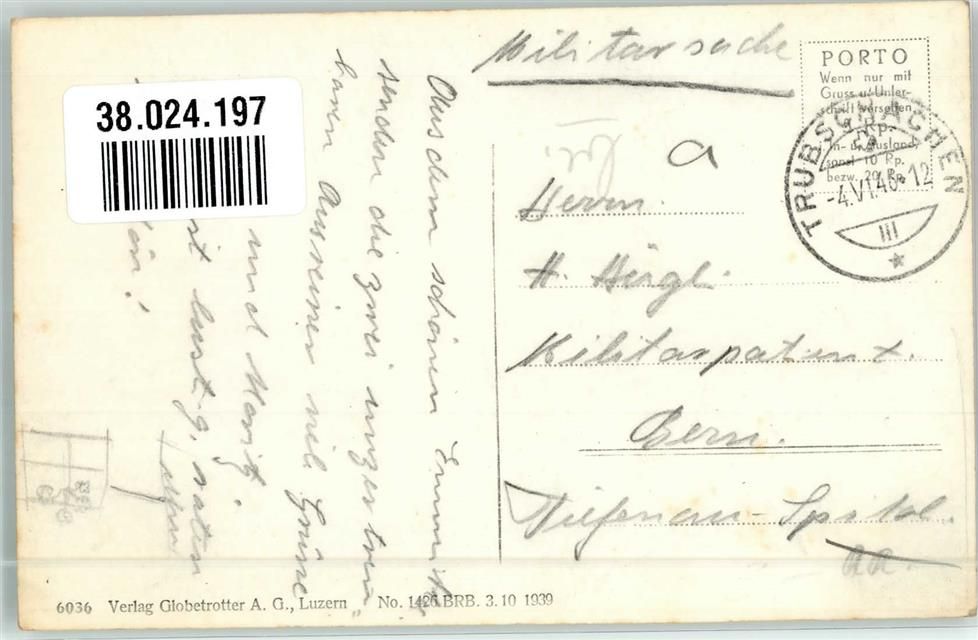 38.024.197
Militärsache
PORTO
Wenn nur mit
Gruss u. Unter-
schrift versehen
Rp.
In- u. Ausland
sonst 10 Rp.
bezw. 20 Rp.
TRUBSCHACHEN
-4.VI.40-12
III
a
Herrn.
H. Hergli
Militärpatient.
Bern.
Tiefenau-Spital.
Aus dem schönen Emmental
senden die zwei unzertren
baren Ausreiser viele Grüsse
und Moritz
lustig, raten
6036 Verlag Globetrotter A. G., Luzern No. 1426 BRB. 3.10 1939